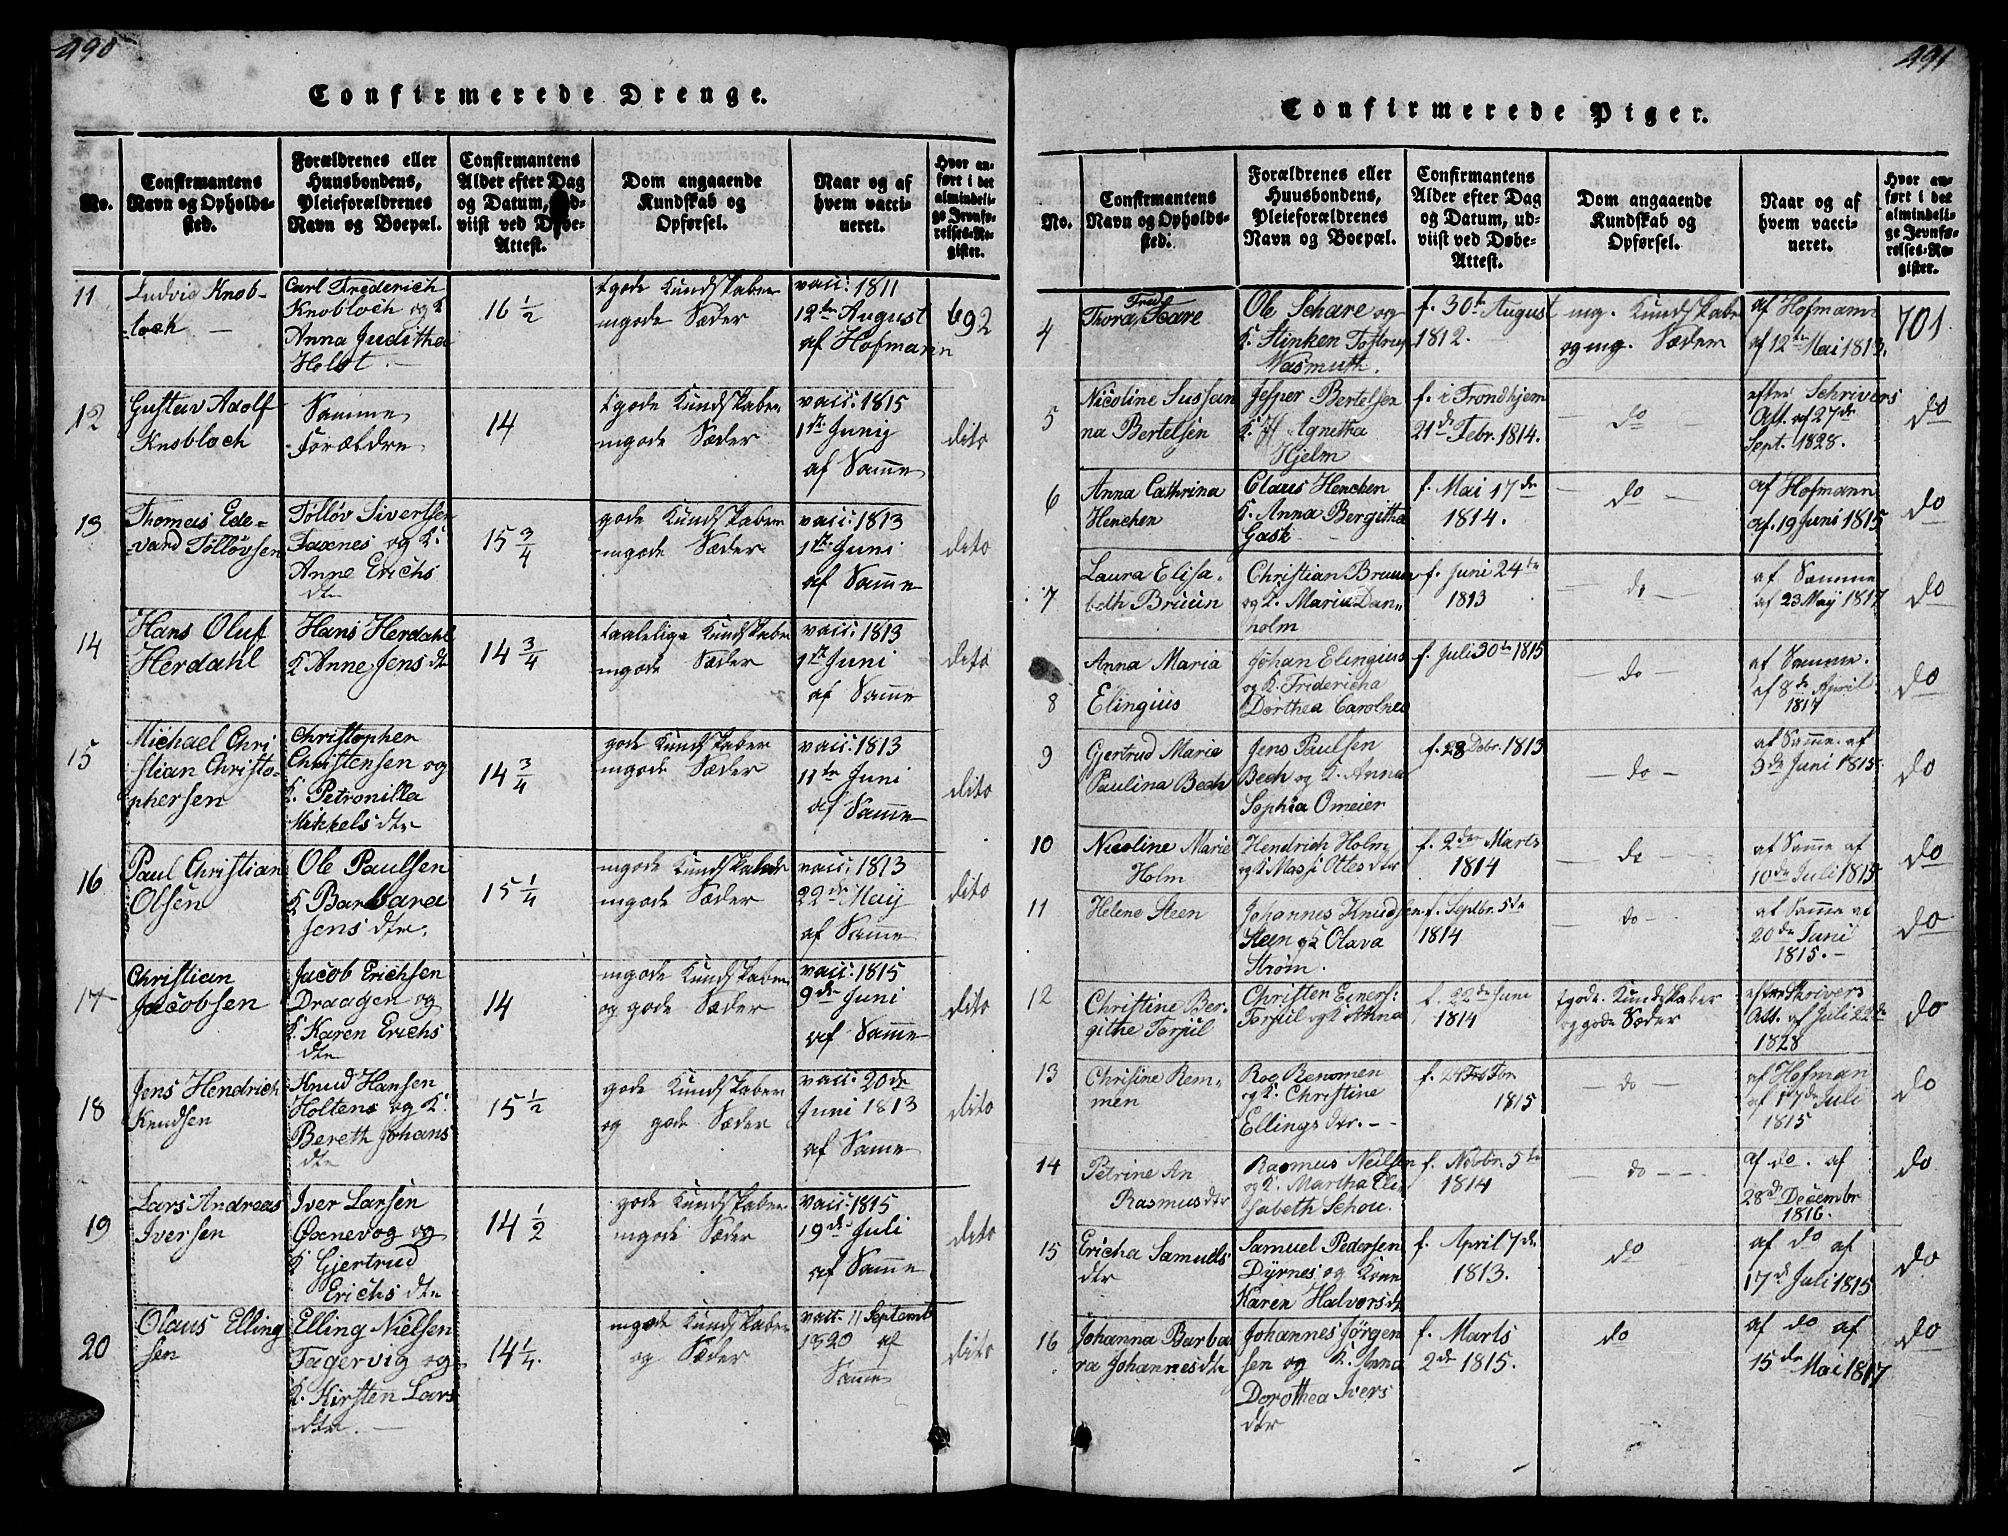 490
Confirmerede Drenge.
No.
Confirmantens
Navn og Opholds-
sted.
Forældrenes eller
Huusbondens,
Pleieforældrenes
Navn og Boepæl.
Confirmantens
Alder efter Dag
og Datum, ud-
viist ved Døbe-
Attest.
Dom angaaende
Kundskab og
Opførsel.
Naar og af
hvem vacci-
neret.
Hvor an-
ført i det
almindeli-
ge Jevnfø-
relses-Re-
gister.
11
Ludvig Knob-
loch
Carl Frederich
Knobloch og K
Anna Juditha
Holst
16 1/2
tgode Kundskaber
mgode Sæder
vacc: 1811
12te August
af Hofmann
692
12
Gustav Adolf
Knobloch
Samme
Forældre
14
tgode Kundskaber
mgode Sæder
vacc: 1815
1ste Junij
af Samme
dito
13
Thomas Ede-
vard Tølløvsen
Tølløv Sivertsen
Faxnes og K:
Anne Erichs
dtr
15 3/4
gode Kundskaber
mgode Sæder
vacc: 1813
1ste Juni
af Samme
dito
14
Hans Oluf
Herdahl
Hans Herdahl
K Anne Jens dtr
14 3/4
taalelige Kundskaber
mgode Sæder
vacc: 1813
1ste Juni
af Samme
dito
15
Michael Chri
stian Christo-
phersen
Christopher
Christensen og
K. Petronilla
Mikkels dtr
14 3/4
gode Kundskaber
mgode Sæder
vacc: 1813
11te Juni
af Samme
dito
16
Paul Christian
Olsen
Ole Paulsen
K Barbara
Jens dtr.
15 1/4
mgode Kundskaber
mgode Sæder
vacc: 1813
22de Maij
af Samme
dito
17
Christian
Jacobsen
Jacob Erichsen
Draagen og
K. Karen Erichs
dtr
14
mgode Kundskaber
og gode Sæder
vacc: 1815
9de Juni
af Samme
dito
18
Jens Hendrich
Knudsen
Knud Hansen
Holtens og K.
Bereth Johans
dtr
15 1/2
gode Kundskaber
og gode Sæder
vacc: 20de
Juni 1813
af Same
dito
19
Lars Andreas
Iversen
Iver Larsen
Øxnevog og
K Gjertrud
Erichs dtr
14 1/2
gode Kundskaber
mgode Sæder
vacc: 1815
19de Juli
af Samme
dito
20
Olaus Elling
sen
Elling Nielsen
Fagervig og
K. Kirsten Lars
dtr.
14 1/4.
mgode Kundskaber
og Sæder
vacc. 11 Septemb
1820 af
Samme
dito
491
Confirmerede Piger.
No.
Confirmantens
Navn og Opholds-
sted.
Forældrenes eller
Huusbondens,
Pleieforældrenes
Navn og Boepæl.
Confirmantens
Alder efter Dag
og Datum, ud-
viist ved Døbe-
Attest.
Dom angaaende
Kundskab og
Opførsel.
Naar og af
hvem vacci-
neret.
Hvor an-
ført i det
almindeli-
ge Jevnfø-
relses-Re-
gister.
4
Thora Scare
Ole Schare og
K. Stinken Tostrup
Wasmuth.
f. 30te August
1812.
mg. Kundskaber
og mg. Sæder
af Hofmann
af 12te Mai 1813.
701.
5
Nicoline Sussan
na Bertelsen
Jesper Bertelsen
K. Agnetha
Hjelm
f. i Trondhjem
21de Febr. 1814.
do
efter Schrivers
Att. af 27de
Sept. 1828.
do
6
Anna Cathrina
Henchen
Claus Henchen
K. Anna Bergitha
Gask
f. Mai 17de
1814.
do
af Hofmann
af. 19 Juni 1815
do
7
Laura Elisa-
beth Bruun
Christian Bruun
og K. Maria Dan-
holm
f. Juni 24de
1813
do
af Samme
af 23 Maij 1817
do
8
Anna Maria
Elingius
Johan Elingius
og K. Fridericha
Dorthea Carolnes
f. Juli 30te 1815
do
af Samme.
af 8de April
1817
do
9
Gjertrud Marie
Paulina Bech
Jens Paulsen
Bech og K. Anna
Sophia Omeier
f. 28 Debr. 1813
do
af Samme. af
3de Juni 1815.
do
10
Nicoline Marie
Holm
Hendrich Holm
og K Massi Ottes dtr
f. 2den Marts
1814
do
af Samme af
10de Juli 1815
do
11
Helene Steen
Johannes Knudsen
Steen og K Olava
Strøm.
f. Septbr. 5te
1814
do
af Samme af
20de Juni
1815.
do
12
Christine Ber-
githe Torjul
Christen Einers:
Torjul og K Anna
f. 22de Juni
1814
tgode. Kundskaber
og gode Sæder
efter Skrivers
Att. af Juli 22de
1828
do
13
Chrisine Rem-
men
Roe Remmen
og K. Christine
Ellings dtr.
1815
do
af Hofman
af 17de Juli
1815
do
14
Petrine An
Rasmus dtr
Rasmus Neilsen
og K. Martha Eli
sabeth Schou.
f. Novbr. 5te
1814
do
af do. af
28de Decembr
1816.
do
15
Ericha Samuels
dtr
Samuel Pedersen
Dyrnes og Kone
Karen Halvors dtr
f. April 7de
1813.
do
af do af
17de Juli 1815
do
16
Johanna Barba
ra Johannes dtr
Johannes Jørgen
sen og K. Anna
Dorothea Ivers
dtr
f. Marts
2de 1815.
do
af do af
15de Mai 1817
do